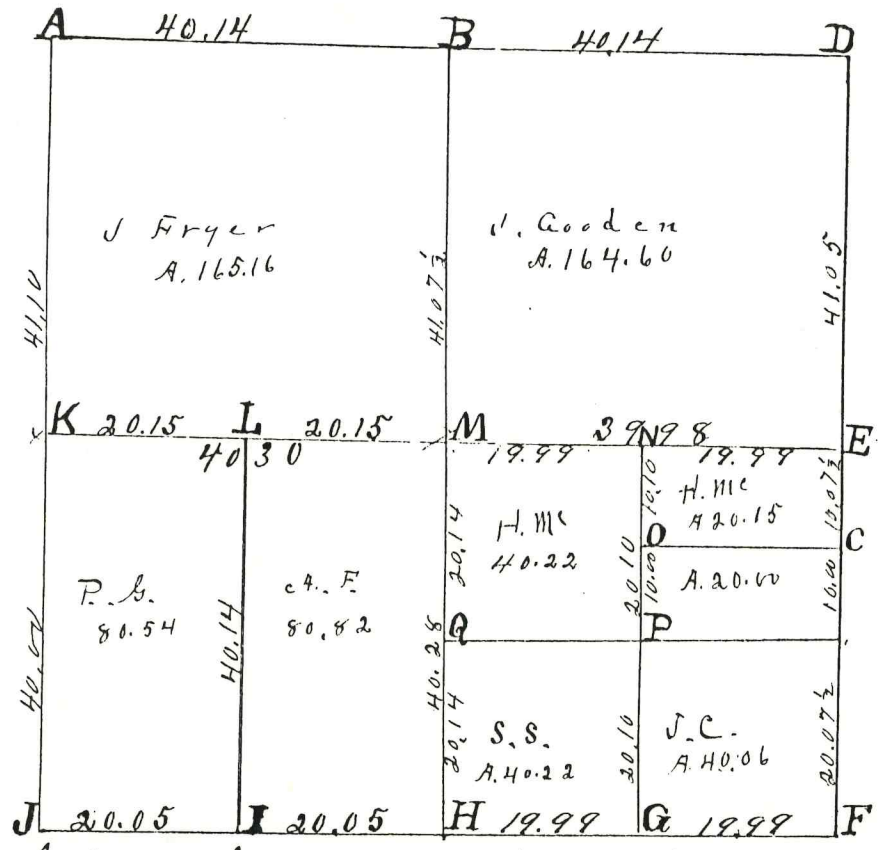 A 40.14 B 40.14 D
J Fryer
A. 165.16
J. Gooden
A. 164.60
41.10
41.07½
41.05
K 20.15 L 20.15 M 39 N 98 E
40 30 19.99 19.99
10.10
H. Mc
A 20.15
10.07½
H. Mc
40.22
20.14
O C
P. G.
80.54
A. F.
80.82
20.10
10.00
A. 20.00
10.00
40.00
40.14
40.28
Q P
20.14
S. S.
A. 40.22
20.10
J. C.
A. 40.06
20.07½
J 20.05 I 20.05 H 19.99 G 19.99 F